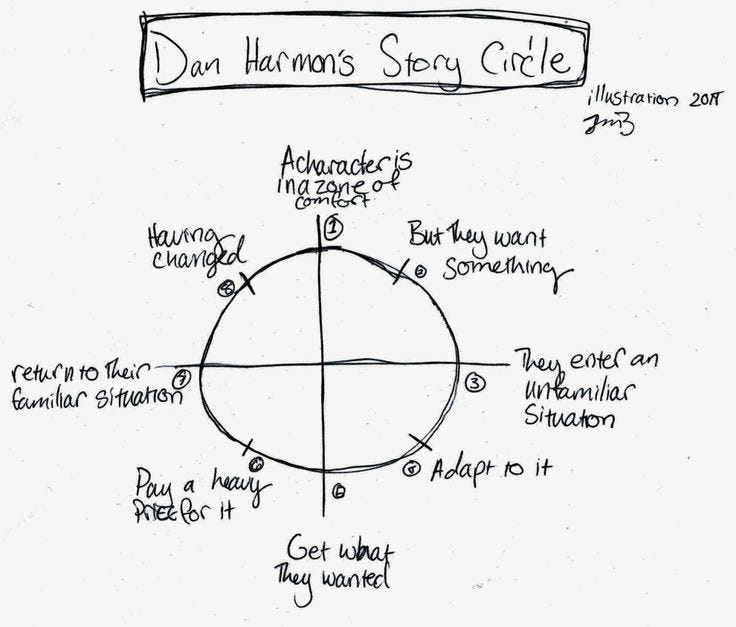 Dan Harmon's Story Circle
illustration
A character is
in a zone of
comfort
①
But they want
something
They enter an
unfamiliar
situation
③
Adapt to it
Get what
They wanted
Pay a heavy
Price for it
return to their
familiar situation
Having
changed
⑧